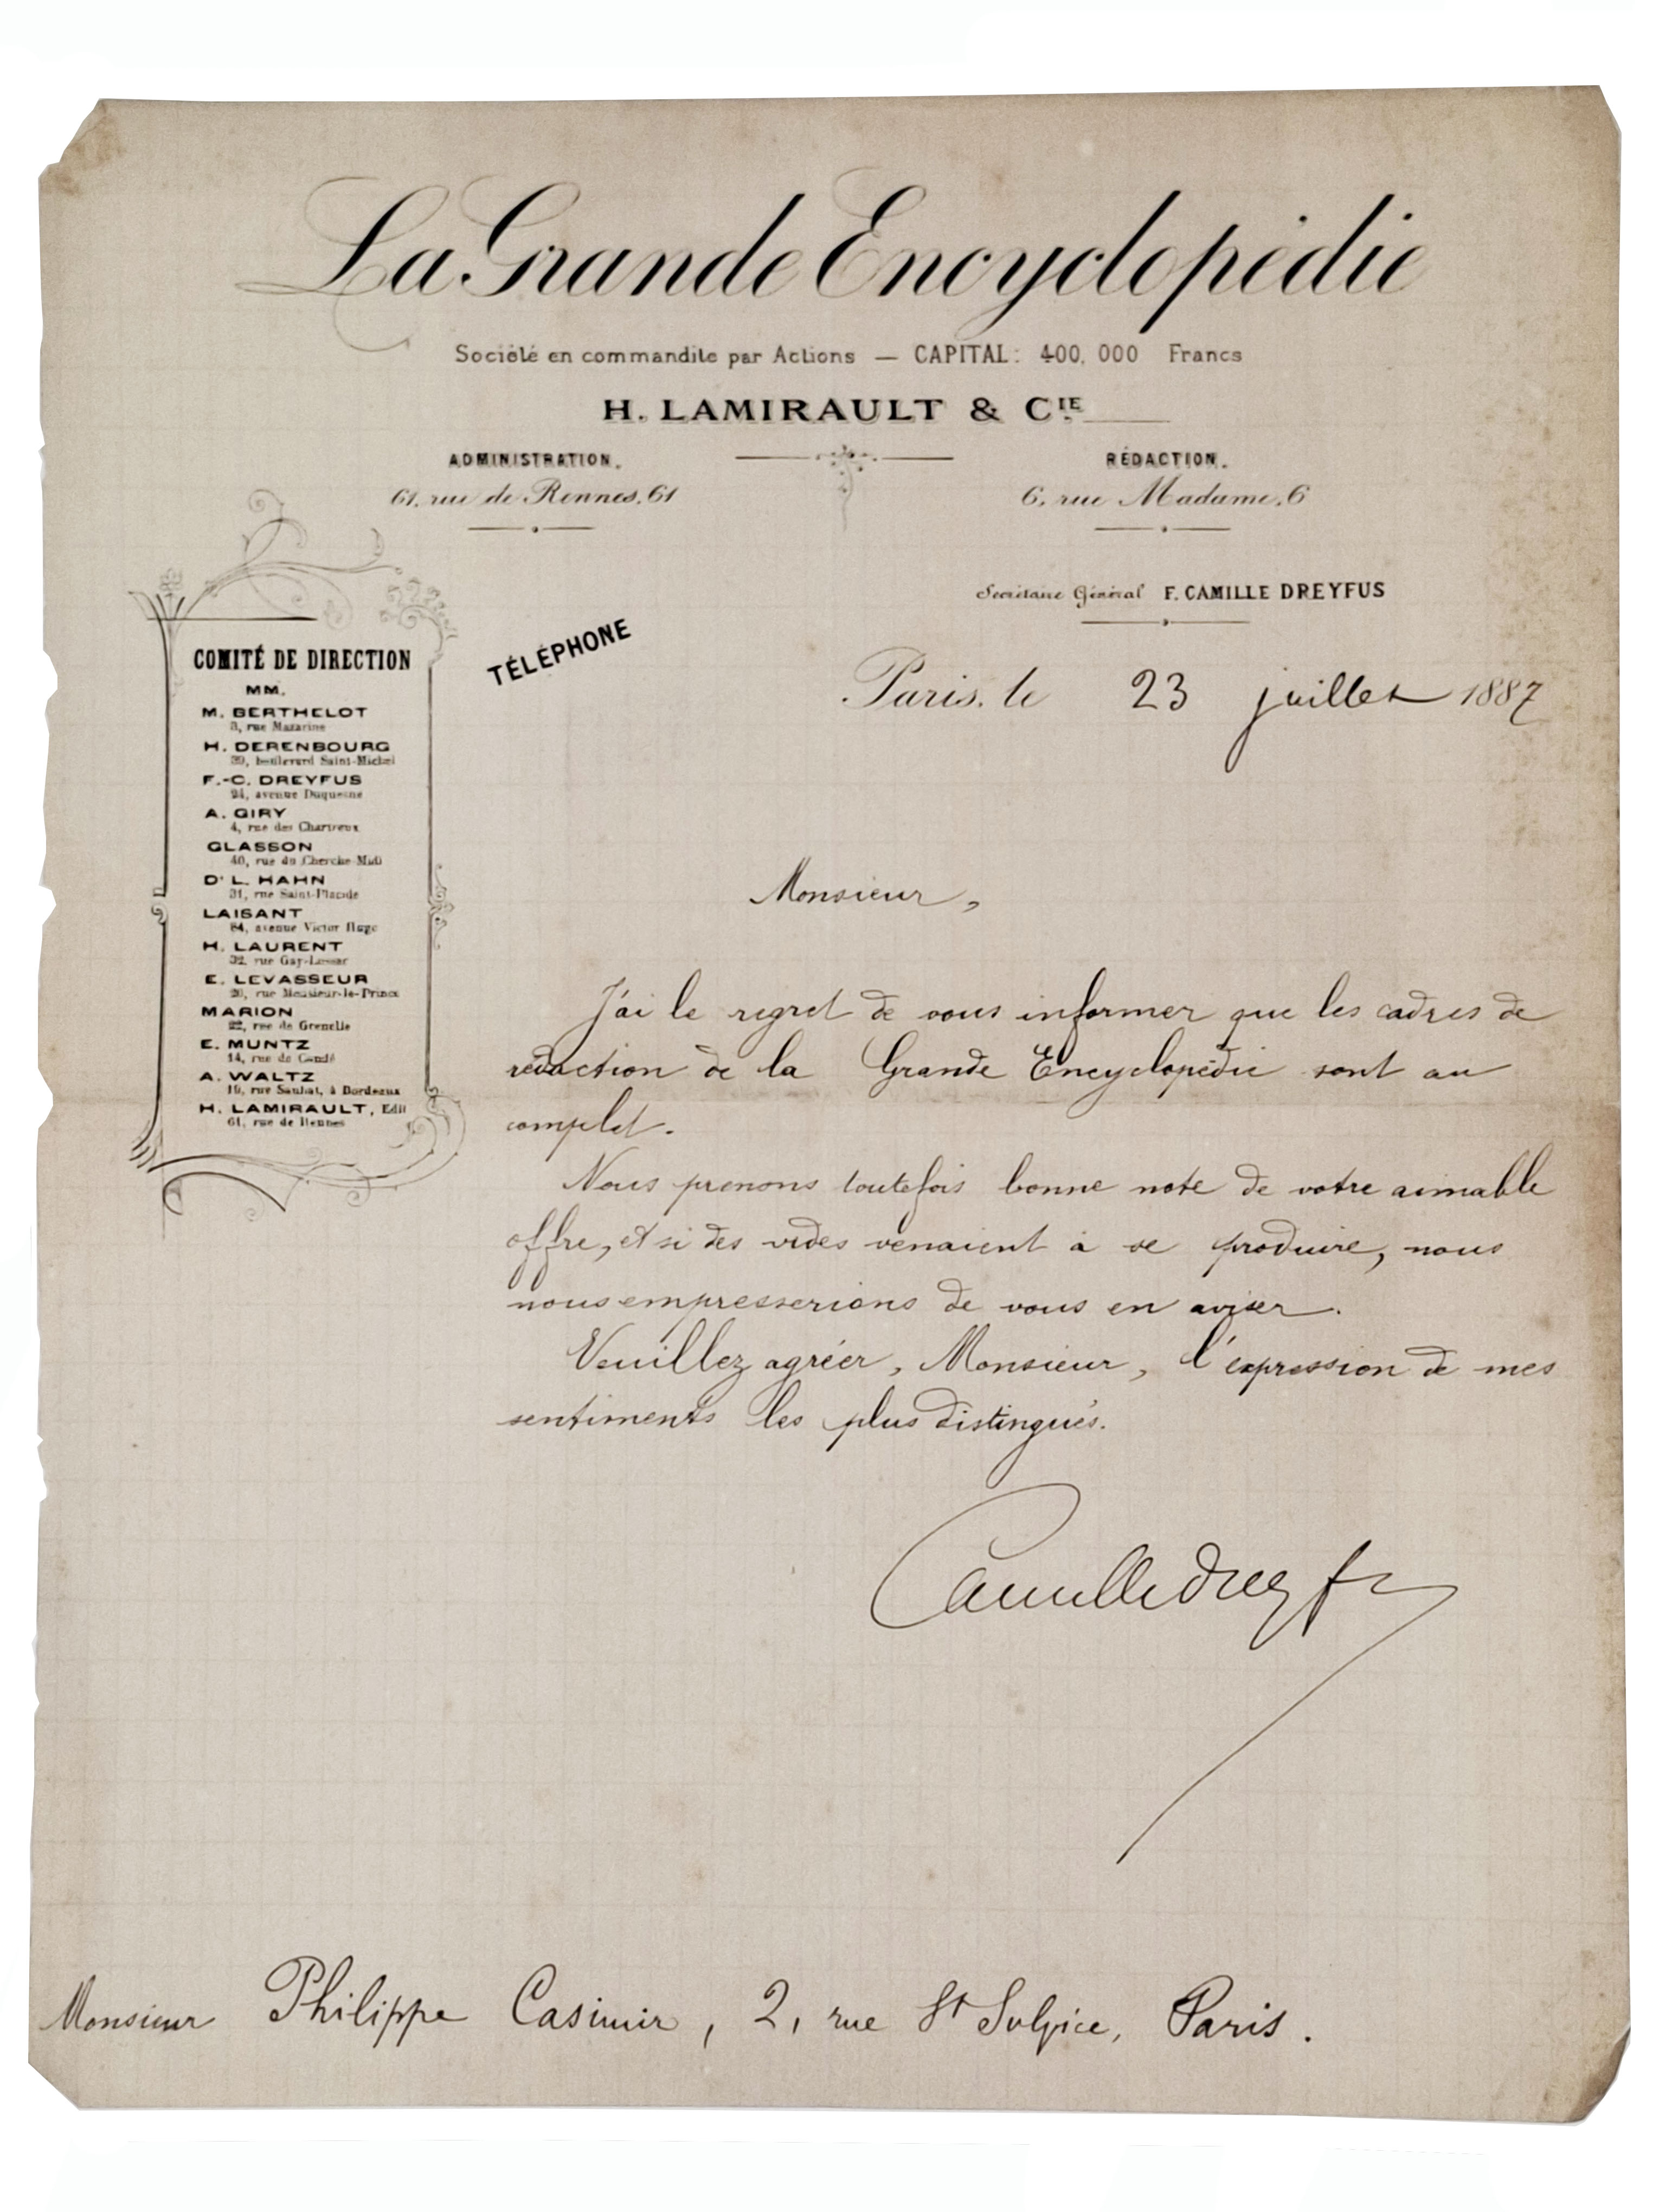 La Grande Encyclopédie
Société en commandite par Actions — CAPITAL: 400,000 Francs
H. LAMIRAULT & CIE
ADMINISTRATION.
61, rue de Rennes, 61
RÉDACTION.
6, rue Madame, 6
Secrétaire Général F. CAMILLE DREYFUS
TÉLÉPHONE
Paris, le 23 juillet 1887
COMITÉ DE DIRECTION
MM.
M. BERTHELOT
3, rue Mazarine
H. DERENBOURG
39, boulevard Saint-Michel
F.-C. DREYFUS
94, avenue Duquesne
A. GIRY
4, rue des Chartreux
GLASSON
40, rue du Cherche-Midi
Dr L. HAHN
31, rue Saint-Placide
LAISANT
84, avenue Victor Hugo
H. LAURENT
32, rue Gay-Lussac
E. LEVASSEUR
26, rue Monsieur-le-Prince
MARION
22, rue de Grenelle
E. MUNTZ
14, rue de Condé
A. WALTZ
16, rue Saubat, à Bordeaux
H. LAMIRAULT, Edit
61, rue de Rennes
Monsieur,
J'ai le regret de vous informer que les cadres de
rédaction de la Grande Encyclopédie sont au
complet.
Nous prenons toutefois bonne note de votre aimable
offre, et si des vides venaient à se produire, nous
nous empresserions de vous en aviser.
Veuillez agréer, Monsieur, l'expression de mes
sentiments les plus distingués.
Camille Dreyfus
Monsieur Philippe Casimir, 2, rue St Sulpice, Paris.